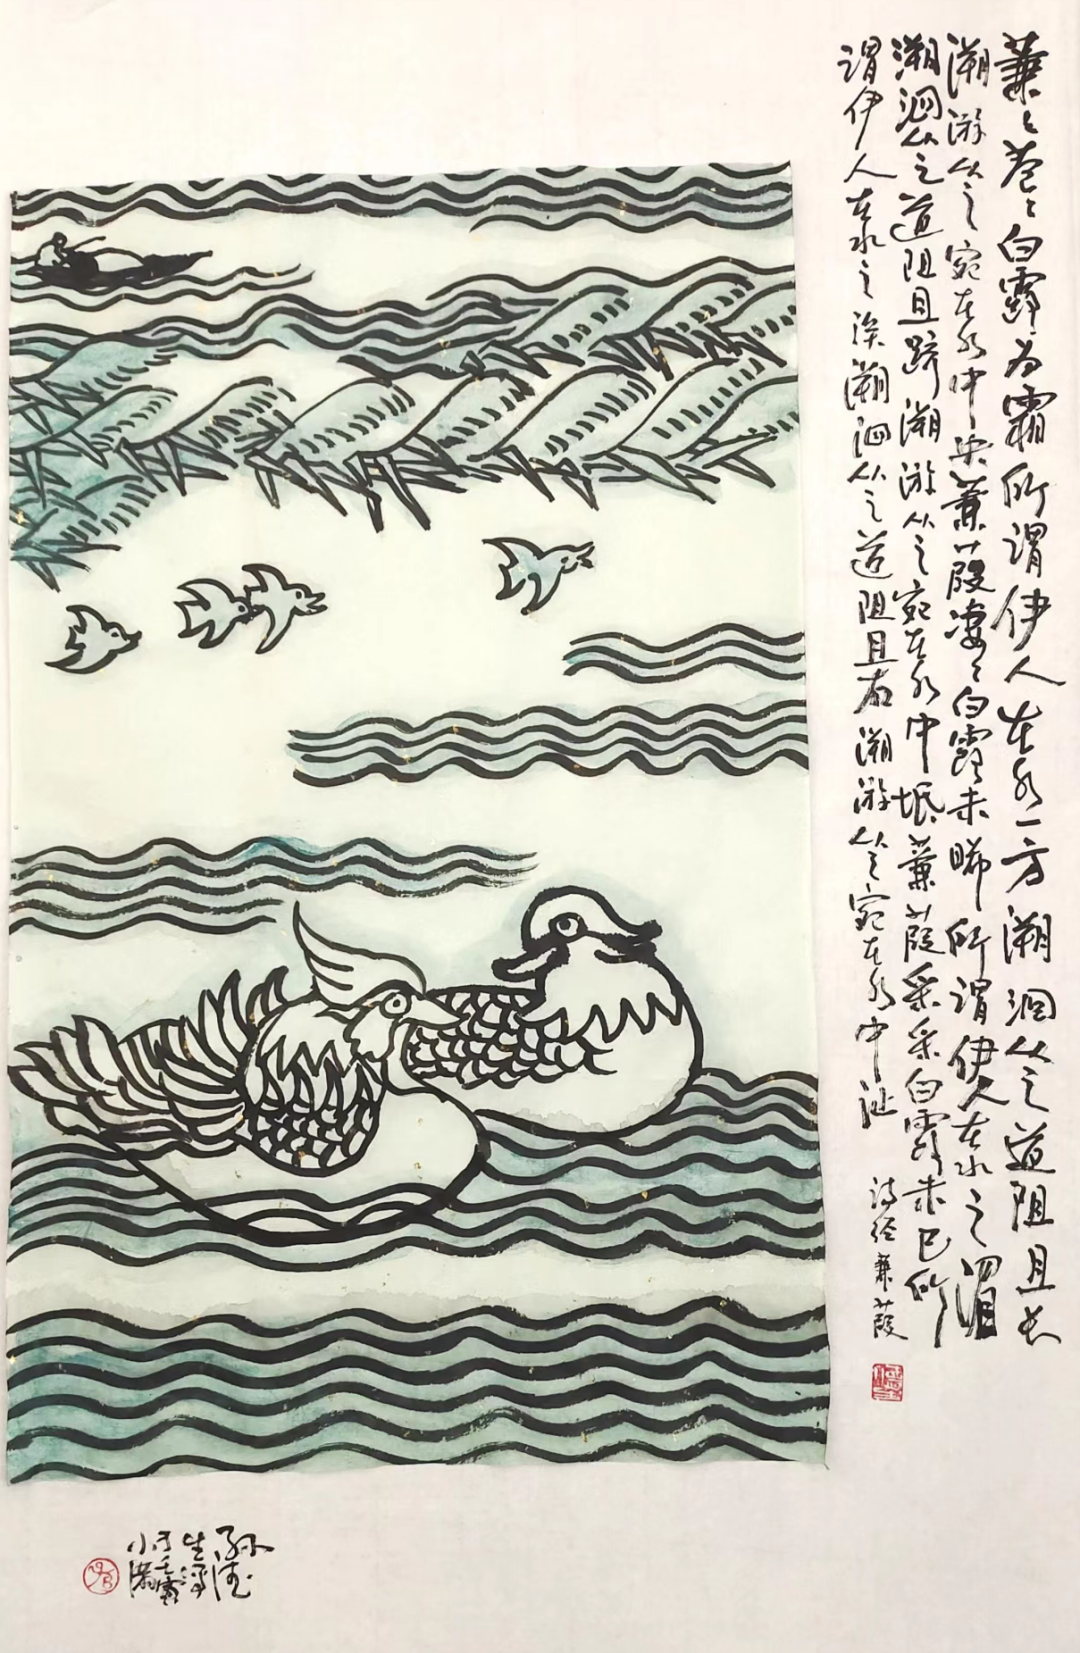 蒹〻苍〻白露为霜所谓伊人在水一方溯洄从之道阻且长
溯游从之宛在水中央蒹葭凄〻白露未晞所谓伊人在水之湄
溯洄从之道阻且跻溯游从之宛在水中坻蒹葭采采白露未已所
谓伊人在水之涘溯洄从之道阻且右溯游从之宛在水中沚
诗经蒹葭